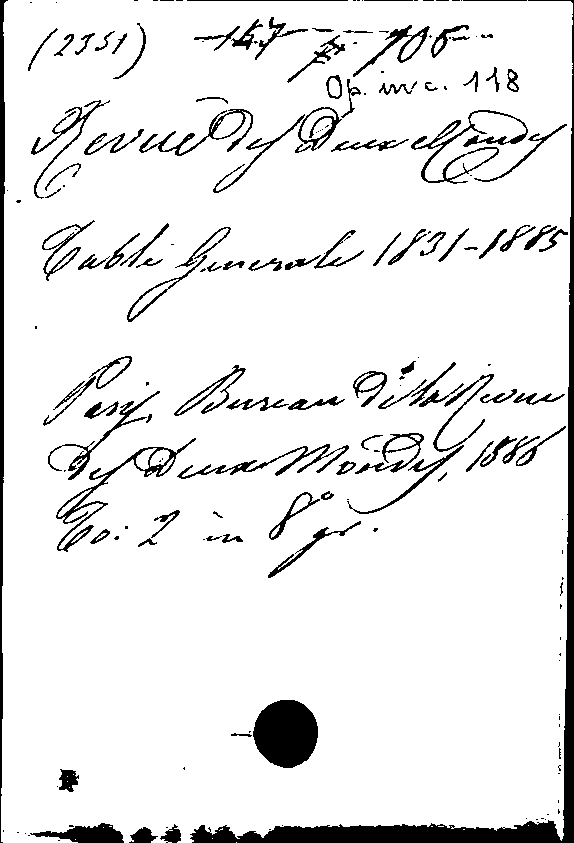 (2351) 157 5. 705
Op. inv c. 118
Revue des Deux Mondes
Table Generale 1831-1885
Paris, Bureau de la Revue
des Deux Mondes, 1886
To: 2 in 8° gr.